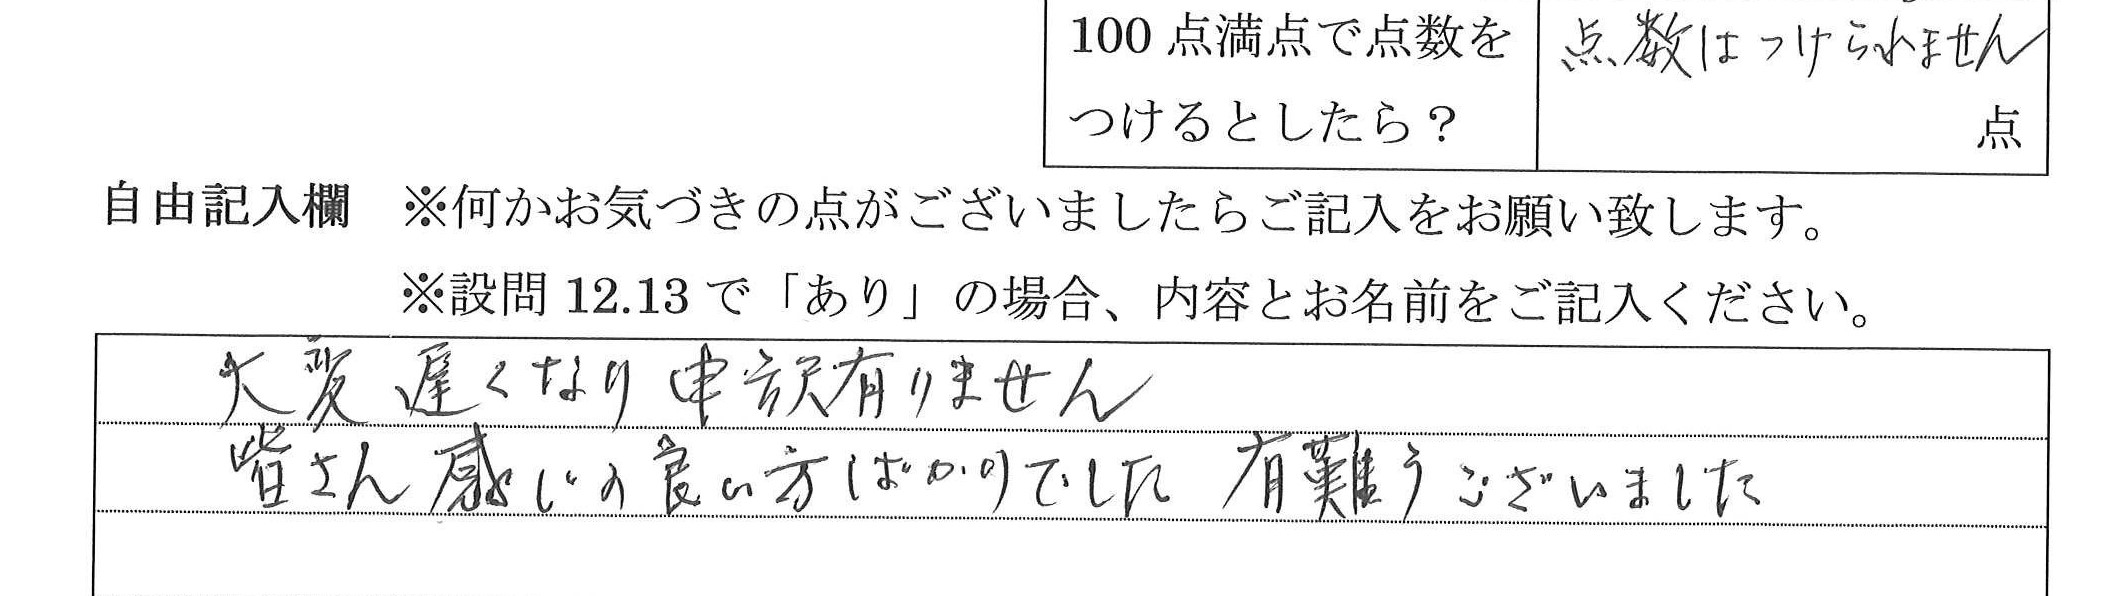 100 点満点で点数を
つけるとしたら？
点数はつけられません
点
自由記入欄 ※何かお気づきの点がございましたらご記入をお願い致します。
※設問 12.13 で「あり」の場合、内容とお名前をご記入ください。
大変遅くなり申訳有りません
皆さん感じの良い方ばかりでした 有難うございました